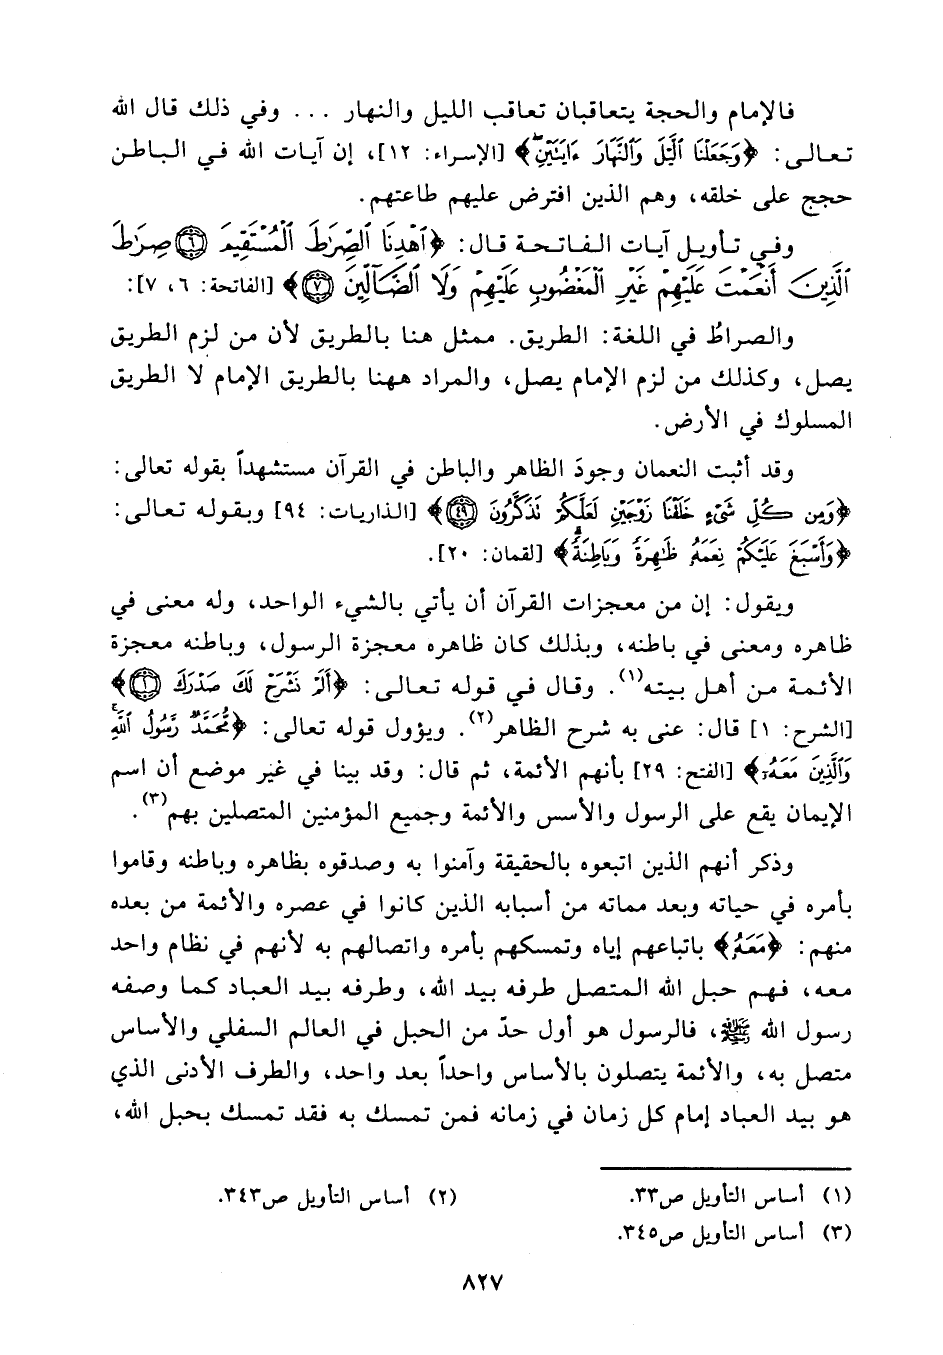 فالإمام والحجة يتعاقبان تعاقب الليل والنهار ... وفي ذلك قال الله
تعالى: ﴿وَجَعَلْنَا ٱلَّيْلَ وَٱلنَّهَارَ ءَايَتَيْنِ﴾ [الإسراء: ١٢]، إن آيات الله في الباطن
حجج على خلقه، وهم الذين افترض عليهم طاعتهم.
وفي تأويل آيات الفاتحة قال: ﴿ٱهْدِنَا ٱلصِّرَٰطَ ٱلْمُسْتَقِيمَ ۝٦ صِرَٰطَ
ٱلَّذِينَ أَنْعَمْتَ عَلَيْهِمْ غَيْرِ ٱلْمَغْضُوبِ عَلَيْهِمْ وَلَا ٱلضَّآلِّينَ ۝٧﴾ [الفاتحة: ٦، ٧]:
والصراطُ في اللغة: الطريق. ممثل هنا بالطريق لأن من لزم الطريق
يصل، وكذلك من لزم الإمام يصل، والمراد ههنا بالطريق الإمام لا الطريق
المسلوك في الأرض.
وقد أثبت النعمان وجودَ الظاهر والباطن في القرآن مستشهداً بقوله تعالى:
﴿وَمِن كُلِّ شَىْءٍ خَلَقْنَا زَوْجَيْنِ لَعَلَّكُمْ تَذَكَّرُونَ ۝٤٩﴾ [الذاريات: ٩٤] وبقوله تعالى:
﴿وَأَسْبَغَ عَلَيْكُمْ نِعَمَهُۥ ظَٰهِرَةً وَبَاطِنَةً﴾ [لقمان: ٢٠].
ويقول: إن من معجزات القرآن أن يأتي بالشيء الواحد، وله معنى في
ظاهره ومعنى في باطنه، وبذلك كان ظاهره معجزة الرسول، وباطنه معجزة
الأئمة من أهل بيته(١). وقال في قوله تعالى: ﴿أَلَمْ نَشْرَحْ لَكَ صَدْرَكَ ۝١﴾
[الشرح: ١] قال: عنى به شرح الظاهر(٢). ويؤول قوله تعالى: ﴿مُّحَمَّدٌ رَّسُولُ ٱللَّهِ
وَٱلَّذِينَ مَعَهُۥٓ﴾ [الفتح: ٢٩] بأنهم الأئمة، ثم قال: وقد بينا في غير موضع أن اسم
الإيمان يقع على الرسول والأسس والأئمة وجميع المؤمنين المتصلين بهم(٣).
وذكر أنهم الذين اتبعوه بالحقيقة وآمنوا به وصدقوه بظاهره وباطنه وقاموا
بأمره في حياته وبعد مماته من أسبابه الذين كانوا في عصره والأئمة من بعده
منهم: ﴿مَعَهُۥ﴾ باتباعهم إياه وتمسكهم بأمره واتصالهم به لأنهم في نظام واحد
معه، فهم حبل الله المتصل طرفه بيد الله، وطرفه بيد العباد كما وصفه
رسول الله ﷺ، فالرسول هو أول حدّ من الحبل في العالم السفلي والأساس
متصل به، والأئمة يتصلون بالأساس واحداً بعد واحد، والطرف الأدنى الذي
هو بيد العباد إمام كل زمان في زمانه فمن تمسك به فقد تمسك بحبل الله،
(١) أساس التأويل ص٣٣.
(٢) أساس التأويل ص٣٤٣.
(٣) أساس التأويل ص٣٤٥.
٨٢٧